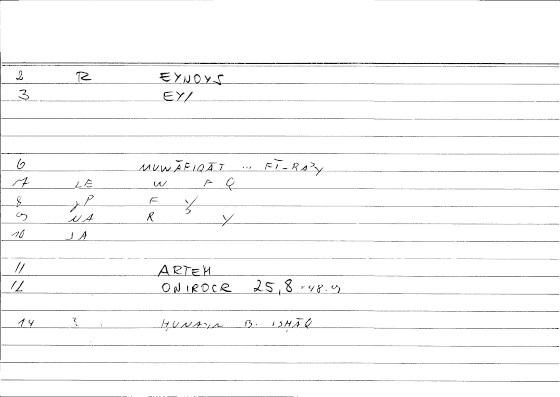 2 R EYNOYS
3 EY/
6 MUWĀFIQĀT ... FĪ-RAʾY
7 LE W F Q
8 F Y
9 NA R ʾ Y
10 JA
11 ARTEM
12 ONIROCR 25,8 - 48.9
14 3. ḤUNAYN B. ISḤĀQ